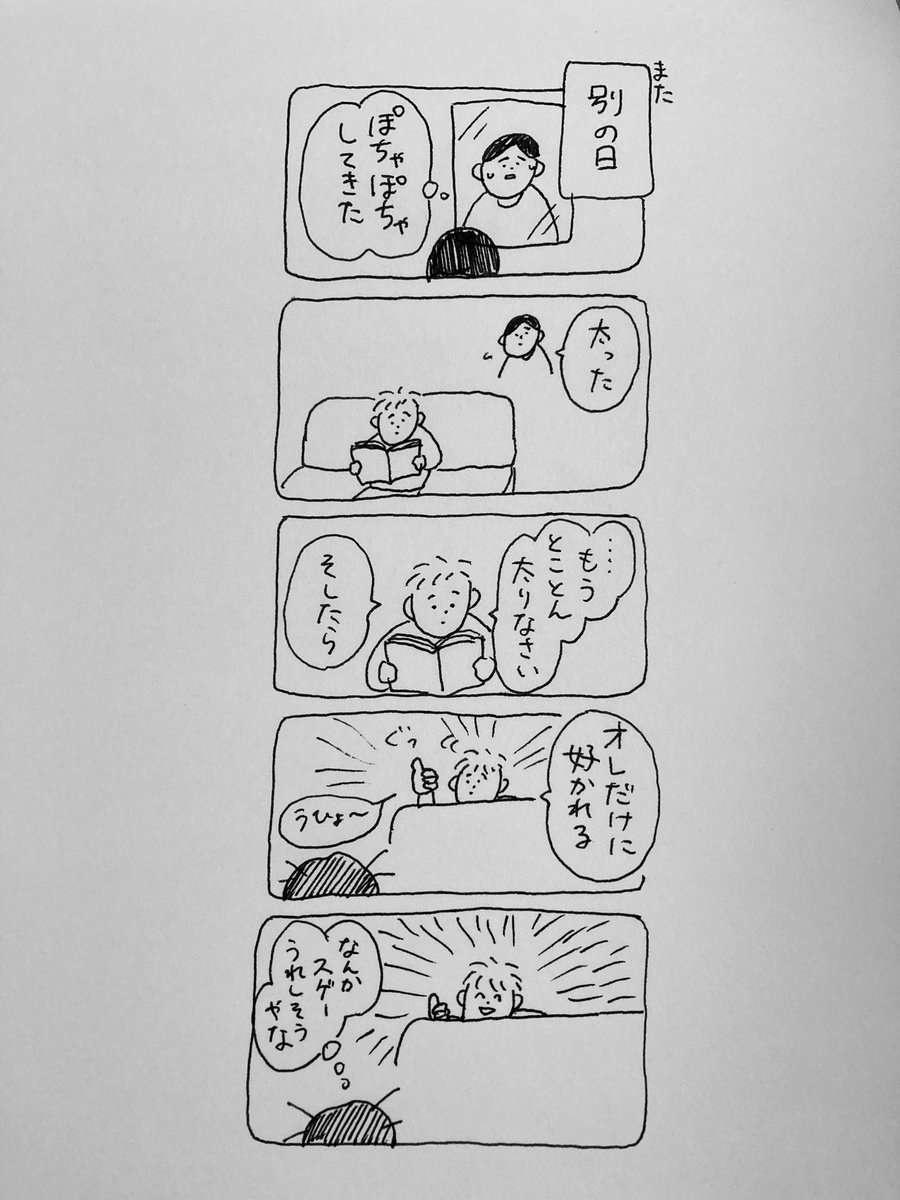 また
別の日
ぽちゃぽちゃ
してきた
太った
……もう
とことん
太りなさい
そしたら
オレだけに
好かれる
ぐっ
うひょ〜
なんか
スゲー
うれしそう
やな